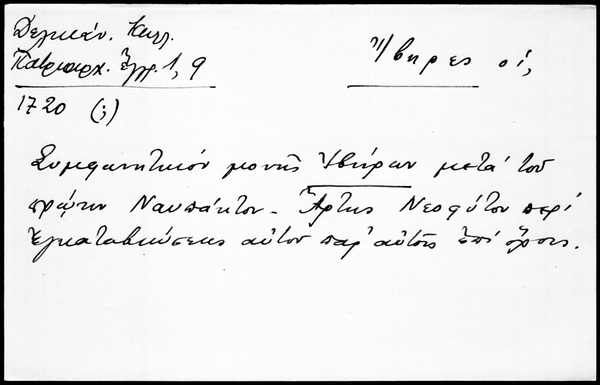 Δελικάν. Καλλ.
Πατριαρχ. Ἔγγρ. 1, 9
Ἴβηρες οἱ,
1720 (;)
Συμφωνητικόν μονῆς Ἰβήρων μετά τοῦ
πρώην Ναυπάκτου - Ἄρτης Νεοφύτου περί
ἐγκαταβιώσεως αὐτοῦ παρ' αὐτοῖς ἐπί ὅροις.